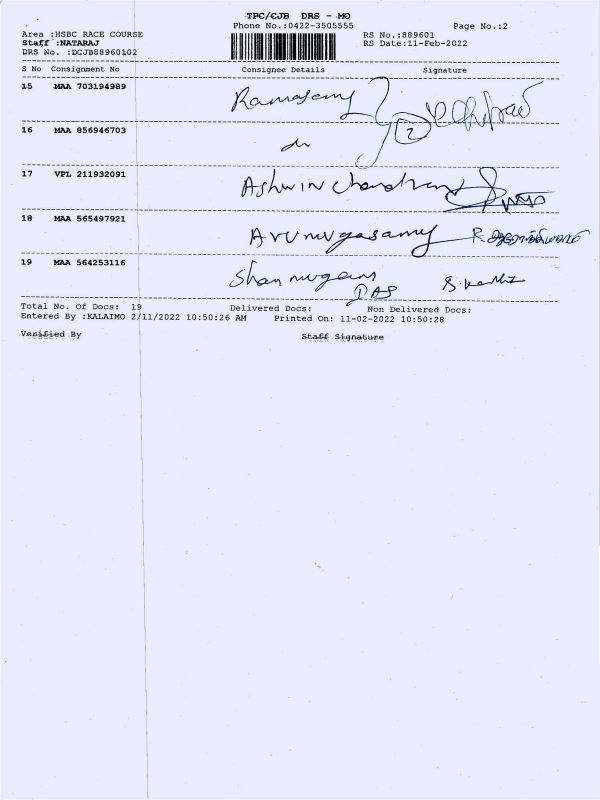 TPC/CJB DRS - MO
Phone No.:0422-3505555 Page No.:2
Area :HSBC RACE COURSE RS No.:889601
Staff :NATARAJ RS Date:11-Feb-2022
DRS No. :DCJB88960102
S No Consignment No Consignee Details Signature
15 MAA 703194989 Ramasamy
16 MAA 856946703 do 2
17 VPL 211932091 Ashwin Chandran
18 MAA 565497921 Arumugasamy R
19 MAA 564253116 Shanmugam
IAS
Total No. Of Docs: 19 Delivered Docs: Non Delivered Docs:
Entered By :KALAIMO 2/11/2022 10:50:26 AM Printed On: 11-02-2022 10:50:28
Verified By Staff Signature